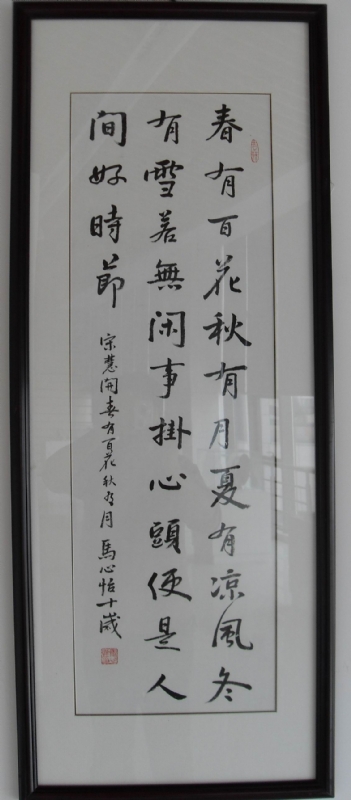 春有百花秋有月夏有凉風冬
有雪若無闲事掛心頭便是人
间好時節
宗慧開春有百花秋有月 馬心怡十歲